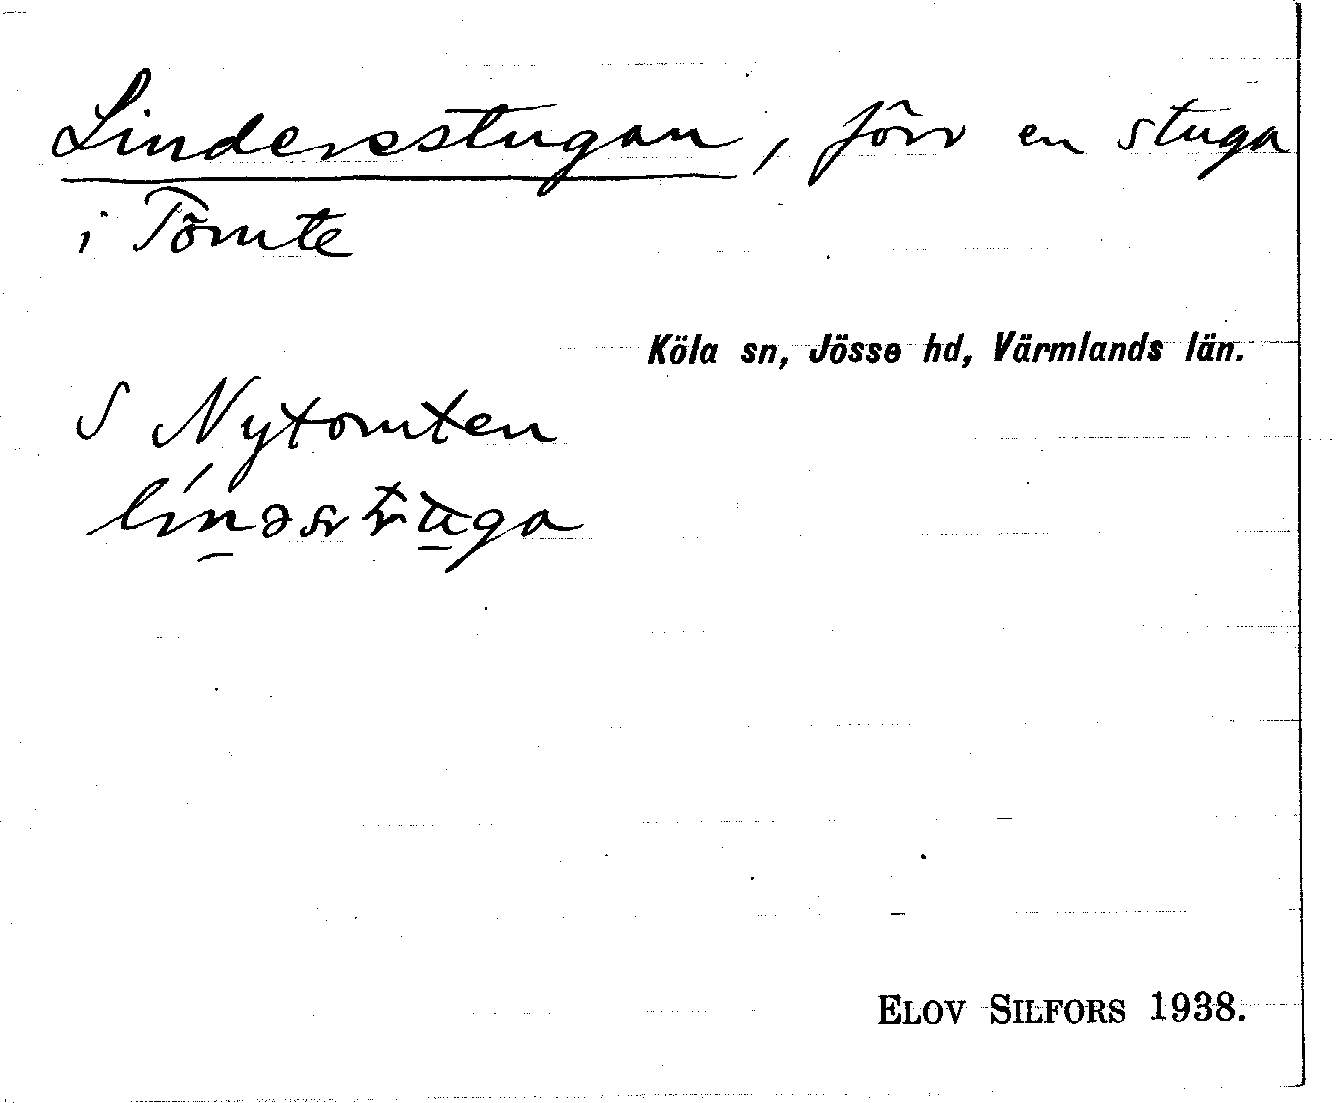 Lindersstugan, förr en stuga
i Tömte
Köla sn, Jösse hd, Värmlands län.
S Nytomten
ELOV SILFORS 1938.